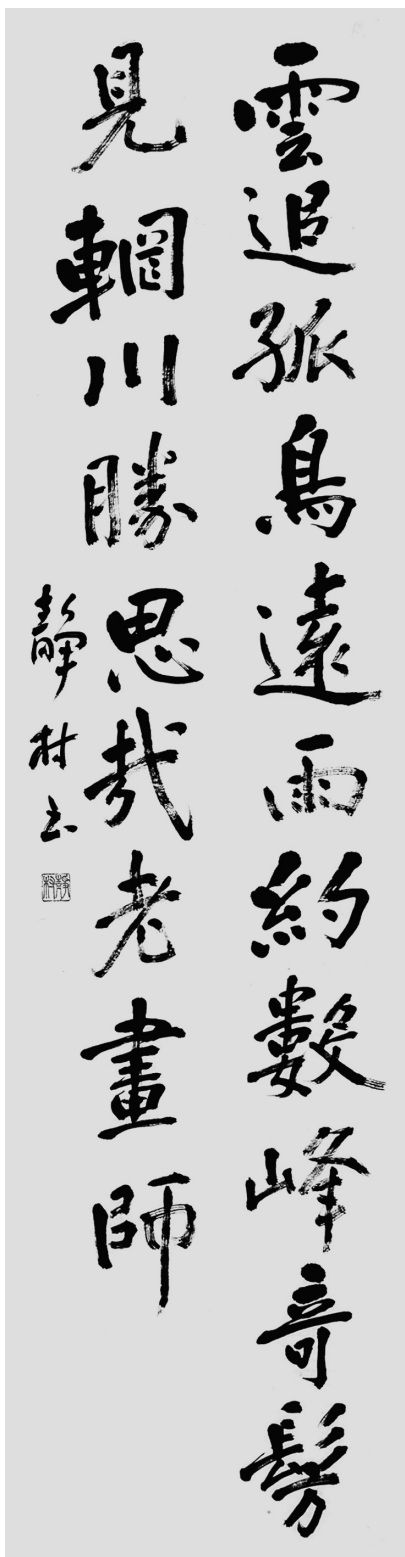 雲追孤鳥遠雨約數峰奇髣
見輞川勝思哉老畫師
靜村書
靜村